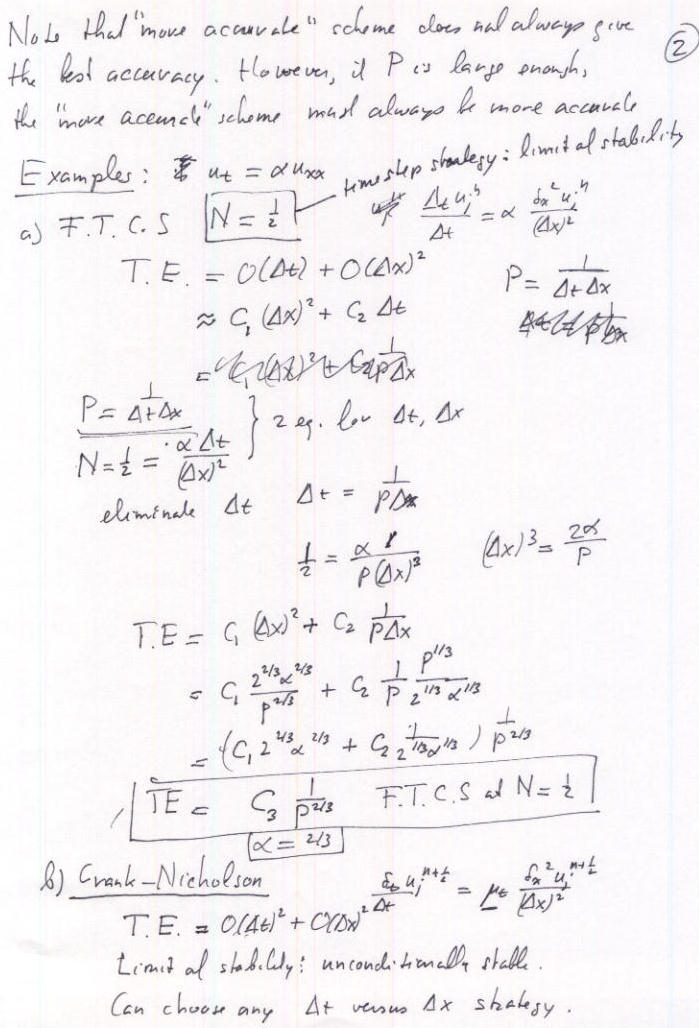 ②
Note that "more accurate" scheme does not always give
the best accuracy. However, if P is large enough,
the "more accurate" scheme must always be more accurate
Examples: u_t = α u_xx
timestep strategy: limit of stability
a) F.T.C.S N = 1/2 Δ_t u_j^n / Δt = α δ_x^2 u_j^n / (Δx)^2
T.E. = O(Δt) + O(Δx)^2 P = 1/(Δt Δx)
≈ C_1 (Δx)^2 + C_2 Δt
P = 1/(Δt Δx)
N = 1/2 = α Δt/(Δx)^2 } 2 eq. for Δt, Δx
eliminate Δt Δt = 1/(PΔx)
1/2 = α 1/(P(Δx)^3) (Δx)^3 = 2α/P
T.E = C_1 (Δx)^2 + C_2 1/(PΔx)
= C_1 2^{2/3} α^{2/3} / P^{2/3} + C_2 1/P P^{1/3} / (2^{1/3} α^{1/3})
= (C_1 2^{2/3} α^{2/3} + C_2 1/(2^{1/3} α^{1/3})) 1/P^{2/3}
TE = C_3 1/P^{2/3} F.T.C.S at N = 1/2
α = 2/3
b) Crank-Nicholson δ_t u_j^{n+1/2} / Δt = μ_t δ_x^2 u_j^{n+1/2} / (Δx)^2
T.E. = O(Δt)^2 + O(Δx)^2
Limit of stability: unconditionally stable.
Can choose any Δt versus Δx strategy.